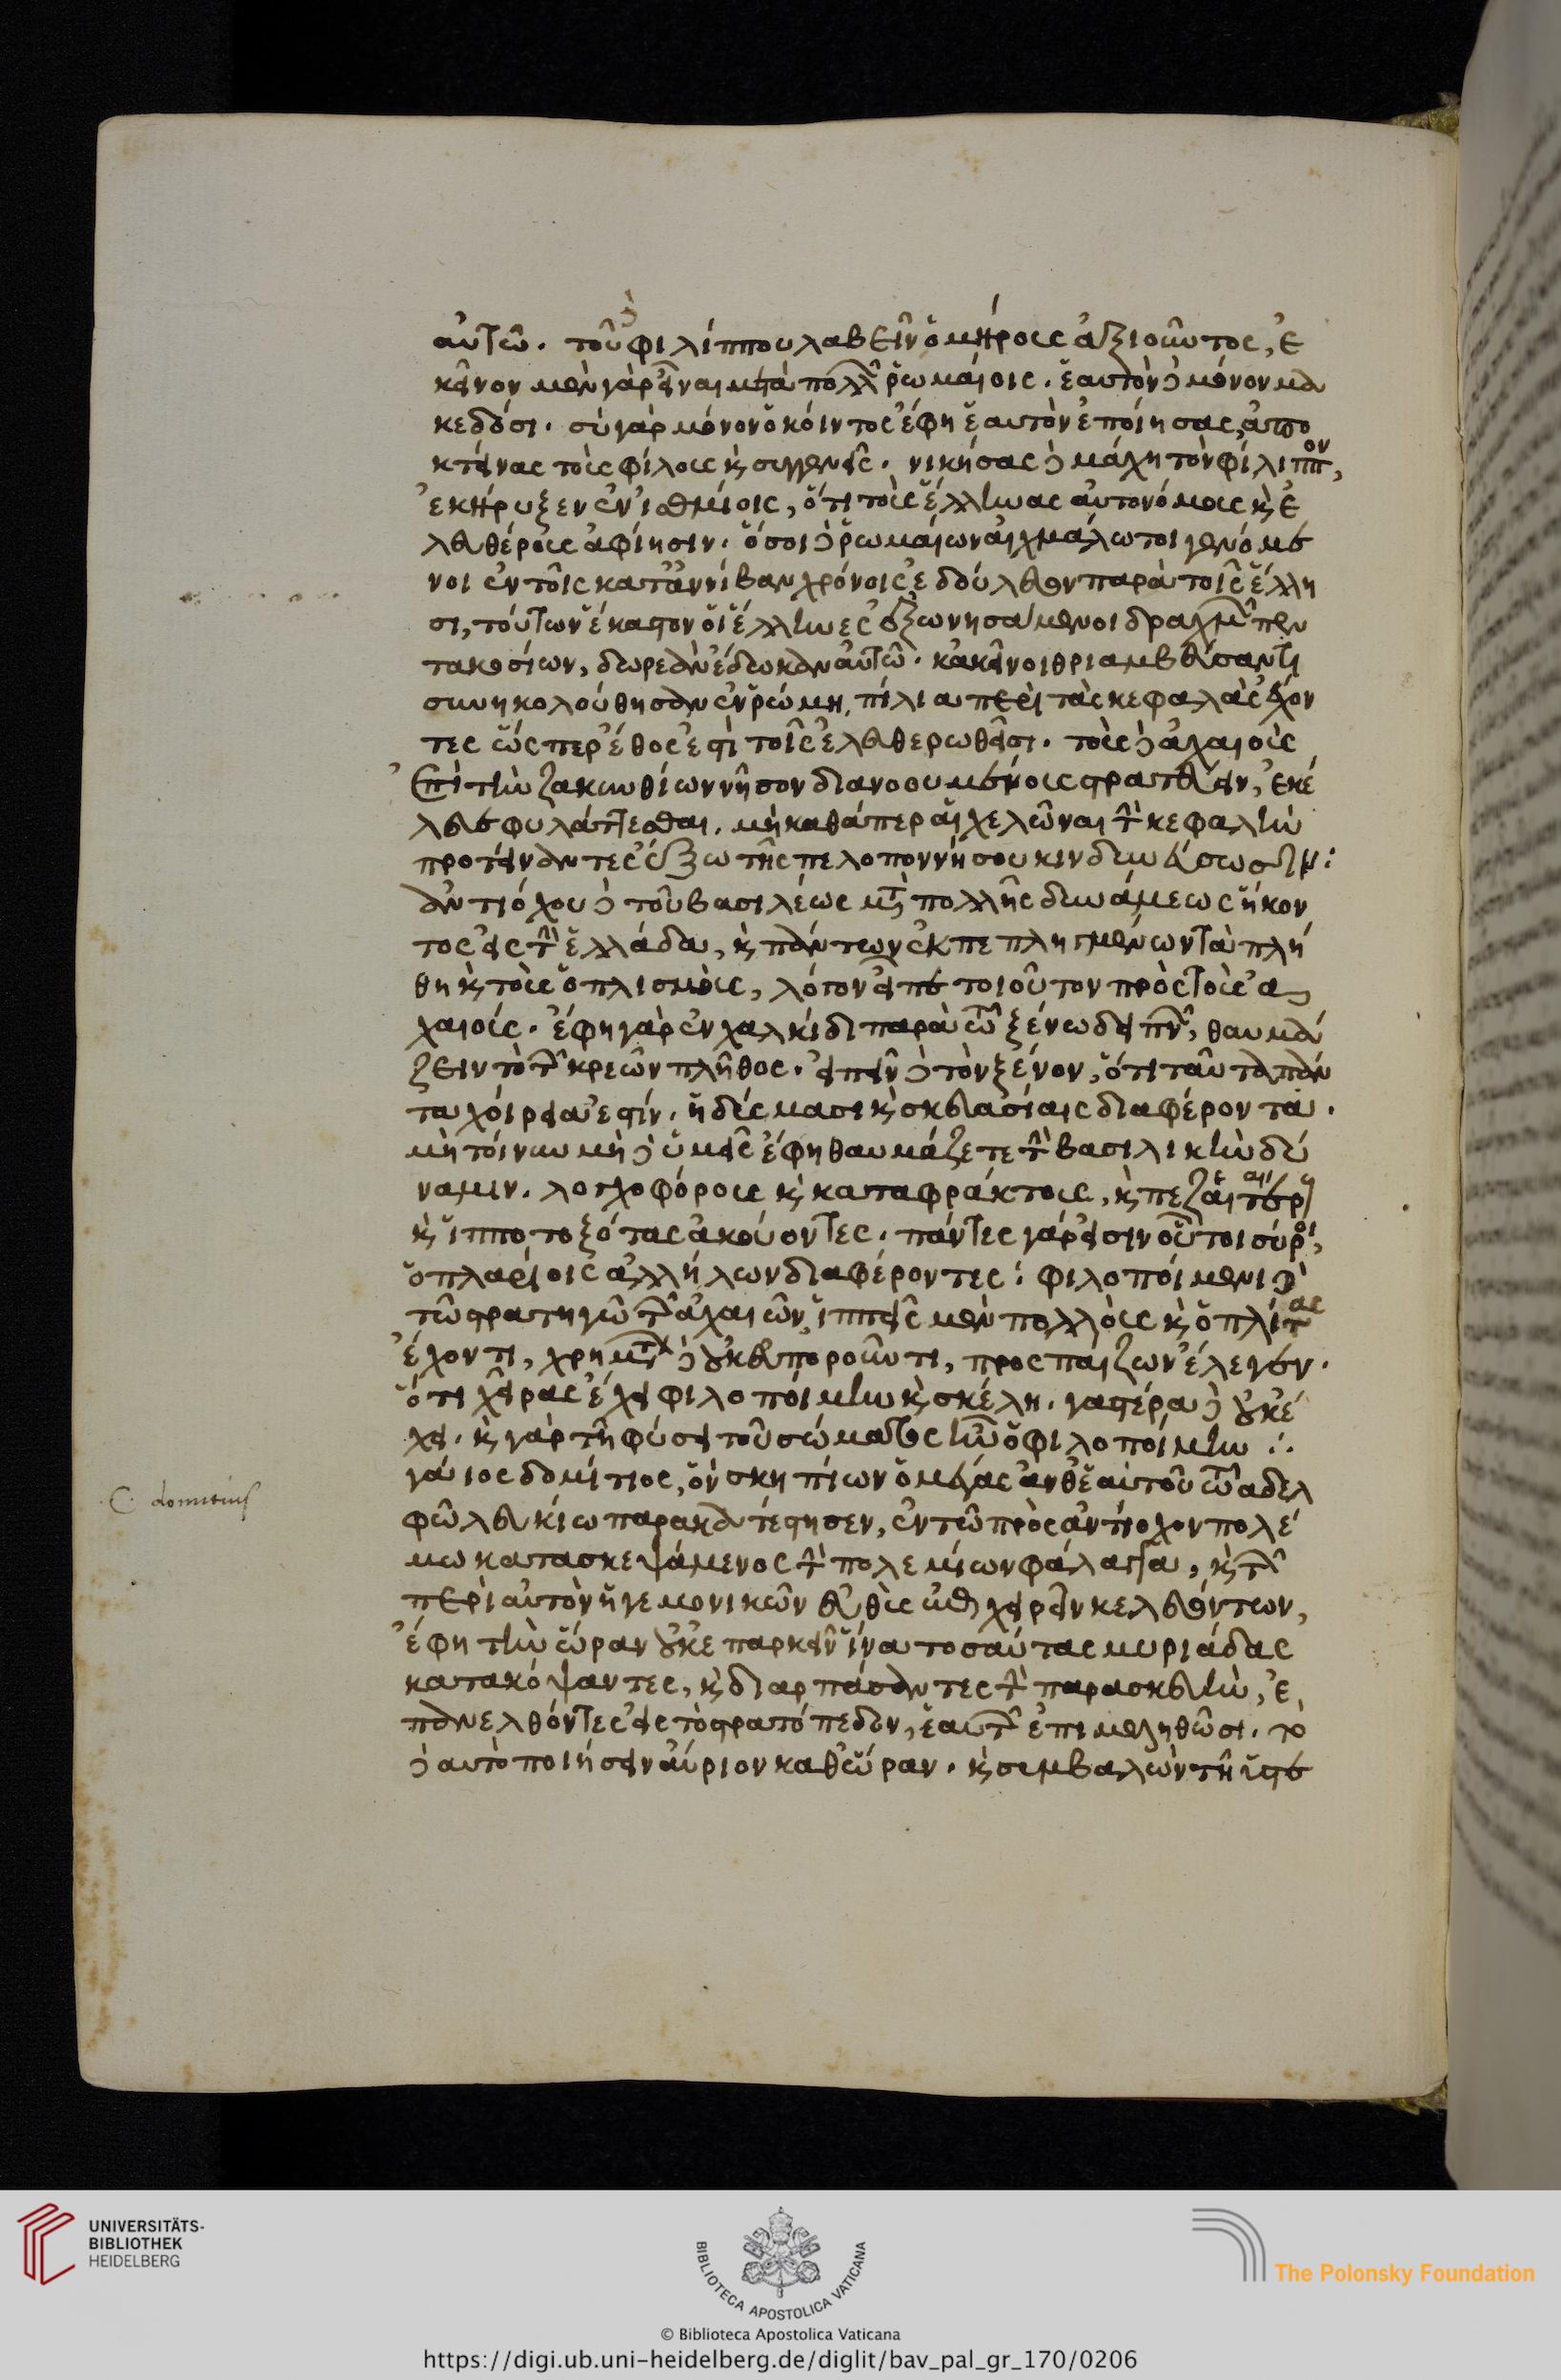 αὐτῶ. τοῦ δὲ φιλίππου λαβεῖν ὁμήρους ἀξιοῦντος, ἐ
κεῖνον μὲν γὰρ εἶναι μετὰ πολλῶν ῥωμαίοις. ἑαυτὸν δὲ μόνον μα
κεδόσι. σὺ γὰρ μόνον ὁ κόιντος ἔφη ἑαυτὸν ἐποίησας, ἀπο
κτείνας τοὺς φίλους καὶ συγγενεῖς. νικήσας δὲ μάχη τὸν φίλιππον,
ἐκήρυξεν ἐν ἰσθμίοις, ὅτι τοὺς ἕλληνας αὐτονόμους καὶ ἐ
λευθέρους ἀφίησιν. ὅσοι δὲ ῥωμαίων αἰχμάλωτοι γενόμε
νοι ἐν τοῖς κατ' ἀννίβαν χρόνοις ἐδούλευον παρὰ τοῖς ἕλλη
σι, τούτων ἕκαστον οἱ ἕλληνες ἐξωνησάμενοι δραχμῶν πεν
τακοσίων, δωρεὰν ἔδωκαν αὐτῶ. κἀκεῖνοι θριαμβεύσαντι
συνηκολούθησαν ἐν ῥώμη, πίλια περὶ τὰς κεφαλὰς ἔχον
τες ὥσπερ ἔθος ἐστὶ τοῖς ἐλευθερωθεῖσι. τοὺς δὲ ἀχαιοὺς
ἐπὶ τὴν ζακυνθίων νῆσον διανοουμένους στρατεύειν, ἐκέ
λευε φυλάττεσθαι. μὴ καθάπερ αἱ χελῶναι τὴν κεφαλὴν
προτείναντες ἔξω τῆς πελοποννήσου κινδυνεύσωσιν:
ἀντιόχου δὲ τοῦ βασιλέως μετὰ πολλῆς δυνάμεως ἥκον
τος εἰς τὴν ἑλλάδα, καὶ πάντων ἐκπεπληγμένων τὰ πλή
θη καὶ τοὺς ὁπλισμοὺς, λόγον εἶπε τοιοῦτον πρὸς τοὺς ἀ
χαιούς. ἔφη γὰρ ἐν χαλκίδι παρὰ τῶ ξένω δειπνῶν, θαυμά
ζειν τὸ τῶν κρεῶν πλῆθος. εἰπεῖν δὲ τὸν ξένον, ὅτι ταῦτα πάν
τα χοίρεια ἐστίν. ἡδύσμασι καὶ σκευασίαις διαφέροντα.
μὴ τοίνυν μὴ δὲ ὑμεῖς ἔφη θαυμάζετε τὴν βασιλικὴν δύ
ναμιν. λογχοφόρους καὶ καταφράκτους, καὶ πεζαιτέρους
καὶ ἱπποτοξότας ἀκούοντες. πάντες γὰρ εἰσιν οὗτοι σύροι,
ὁπλαρίοις ἀλλήλων διαφέροντες: φιλοποίμενι δὲ
τῶ στρατηγῶ τῶν ἀχαιῶν, ἱππεῖς μὲν πολλοὺς καὶ ὁπλίτας
ἔχοντι, χρημάτων δὲ οὐκ εὐποροῦντι, προσπαίζων ἔλεγεν.
ὅτι χεῖρας ἔχει φιλοποίμην καὶ σκέλη. γαστέρα δὲ οὐκ ἔ
χει. καὶ γὰρ τῆ φύσει τοῦ σώματος ἦν ὁ φιλοποίμην ∴
γάιος δομίτιος, ὃν σκηπίων ὁ μέγας ἀνθ' ἑαυτοῦ τῶ ἀδελ
C. domitius
φῶ λευκίω παρακατέστησεν, ἐν τῶ πρὸς ἀντίοχον πολέ
μω κατασκεψάμενος τὴν πολεμίων φάλαγγα, καὶ τῶν
περὶ αὐτὸν ἡγεμονικῶν εὐθὺς ἐπιχειρεῖν κελευόντων,
ἔφη τὴν ὥραν οὐκ ἐπαρκεῖν ἵνα τοσαύτας μυριάδας
κατακόψαντες, καὶ διαρπάσαντες τὴν παρασκευὴν, ἐ
πανελθόντες εἰς τὸ στρατόπεδον, ἑαυτῶν ἐπιμεληθῶσι. τὸ
δὲ αὐτὸ ποιήσειν αὔριον καθ' ὥραν. καὶ συμβαλὼν τῆ ὑστε
UNIVERSITÄTS-
BIBLIOTHEK
HEIDELBERG
BIBLIOTECA APOSTOLICA VATICANA
The Polonsky Foundation
© Biblioteca Apostolica Vaticana
https://digi.ub.uni-heidelberg.de/diglit/bav_pal_gr_170/0206